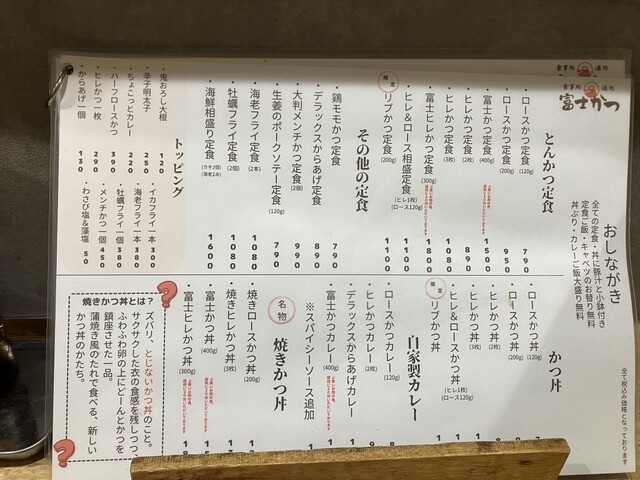 食事処 酒処
富士かつ
おしながき
全ての定食・丼に豚汁と小鉢付き
定食ご飯・キャベツのお替り無料
丼ぶり・カレーご飯大盛り無料
とんかつ定食
・ロースかつ定食(120g) 790
・ロースかつ定食(200g) 950
・富士かつ定食(400g) 1500
・ヒレかつ定食(2枚) 890
・ヒレかつ定食(3枚) 1080
・富士ヒレかつ定食(300g) 1850
・ヒレ&ロース相盛定食(ヒレ1枚)(ロース120g) 1100
限定 リブかつ定食(200g) 1300
その他の定食
・鶏モモかつ定食 790
・デラックスからあげ定食 890
・大判メンチかつ定食(2個) 990
・生姜のポークソテー定食(120g) 790
・海老フライ定食(2本) 1080
・牡蠣フライ定食(2個) 1080
・海鮮相盛り定食(カキ2個)(海老2本) 1600
トッピング
・鬼おろし大根 120
・辛子明太子 250
・ちょこっとカレー 220
・ハーフロースかつ 390
・ヒレかつ一枚 290
・からあげ一個 130
・イカフライ一本 380
・海老フライ一本 380
・牡蠣フライ一個 380
・メンチかつ一個 450
・わさび塩&藻塩 50
かつ丼
・ロースかつ丼(120g)
・ロースかつ丼(200g)
・ヒレかつ丼(2枚)
・ヒレかつ丼(3枚)
・ヒレ&ロースかつ丼(ヒレ1枚)(ロース120g)
限定 リブかつ丼
自家製カレー
・ロースかつカレー(120g)
・ヒレかつカレー(2枚)
・デラックスからあげカレー
・富士かつカレー(400g)
※スパイシーソース追加
名物 焼きかつ丼
・焼きロースかつ丼(200g)
・焼きヒレかつ丼(3枚)
・富士かつ丼(400g)
・富士ヒレかつ丼(300g)
焼きかつ丼とは?
ズバリ、とじないかつ丼のこと。
サクサクした衣の食感を残しつつ、
ふわふわ卵の上にどーんとかつを
鎮座させた一品。
蒲焼き風のたれで食べる、新しい
かつ丼のかたち。
全て税込み価格となっております